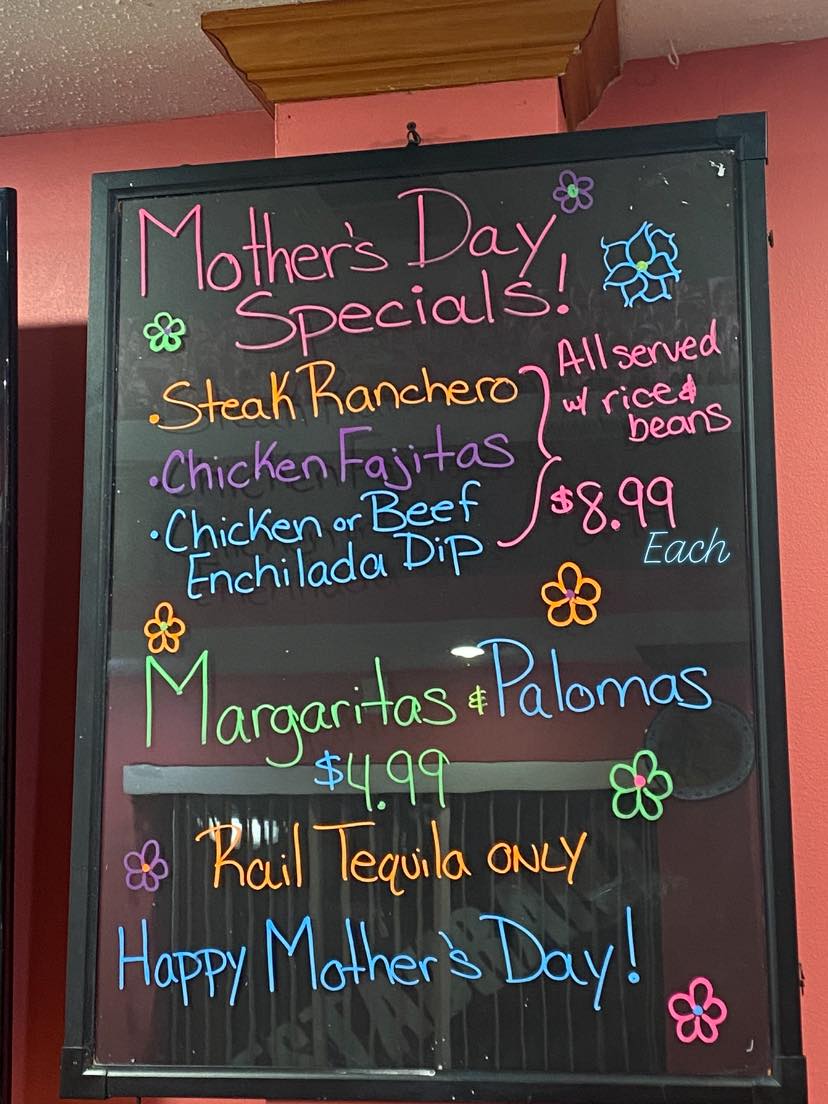 Mother's Day
Specials!
• Steak Ranchero
• Chicken Fajitas
• Chicken or Beef
Enchilada Dip
All served
w/ rice &
beans
$8.99
Each
Margaritas & Palomas
$4.99
Rail Tequila ONLY
Happy Mother's Day!